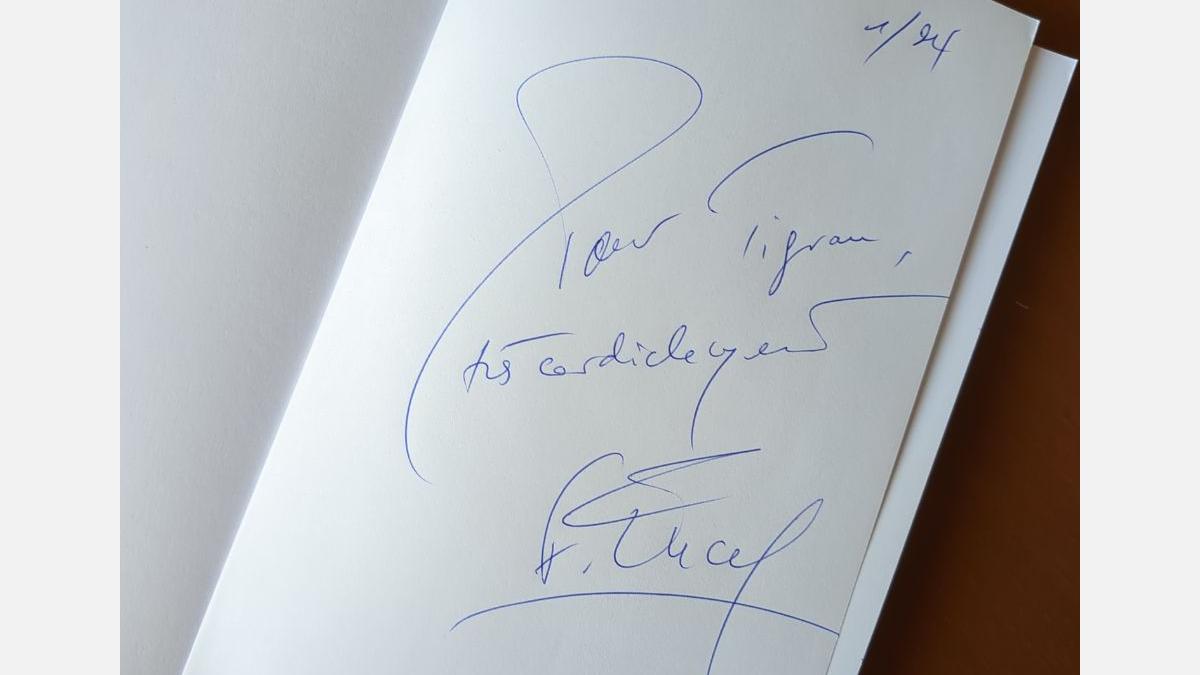 1/24
Pour Tigran,
très cordialement